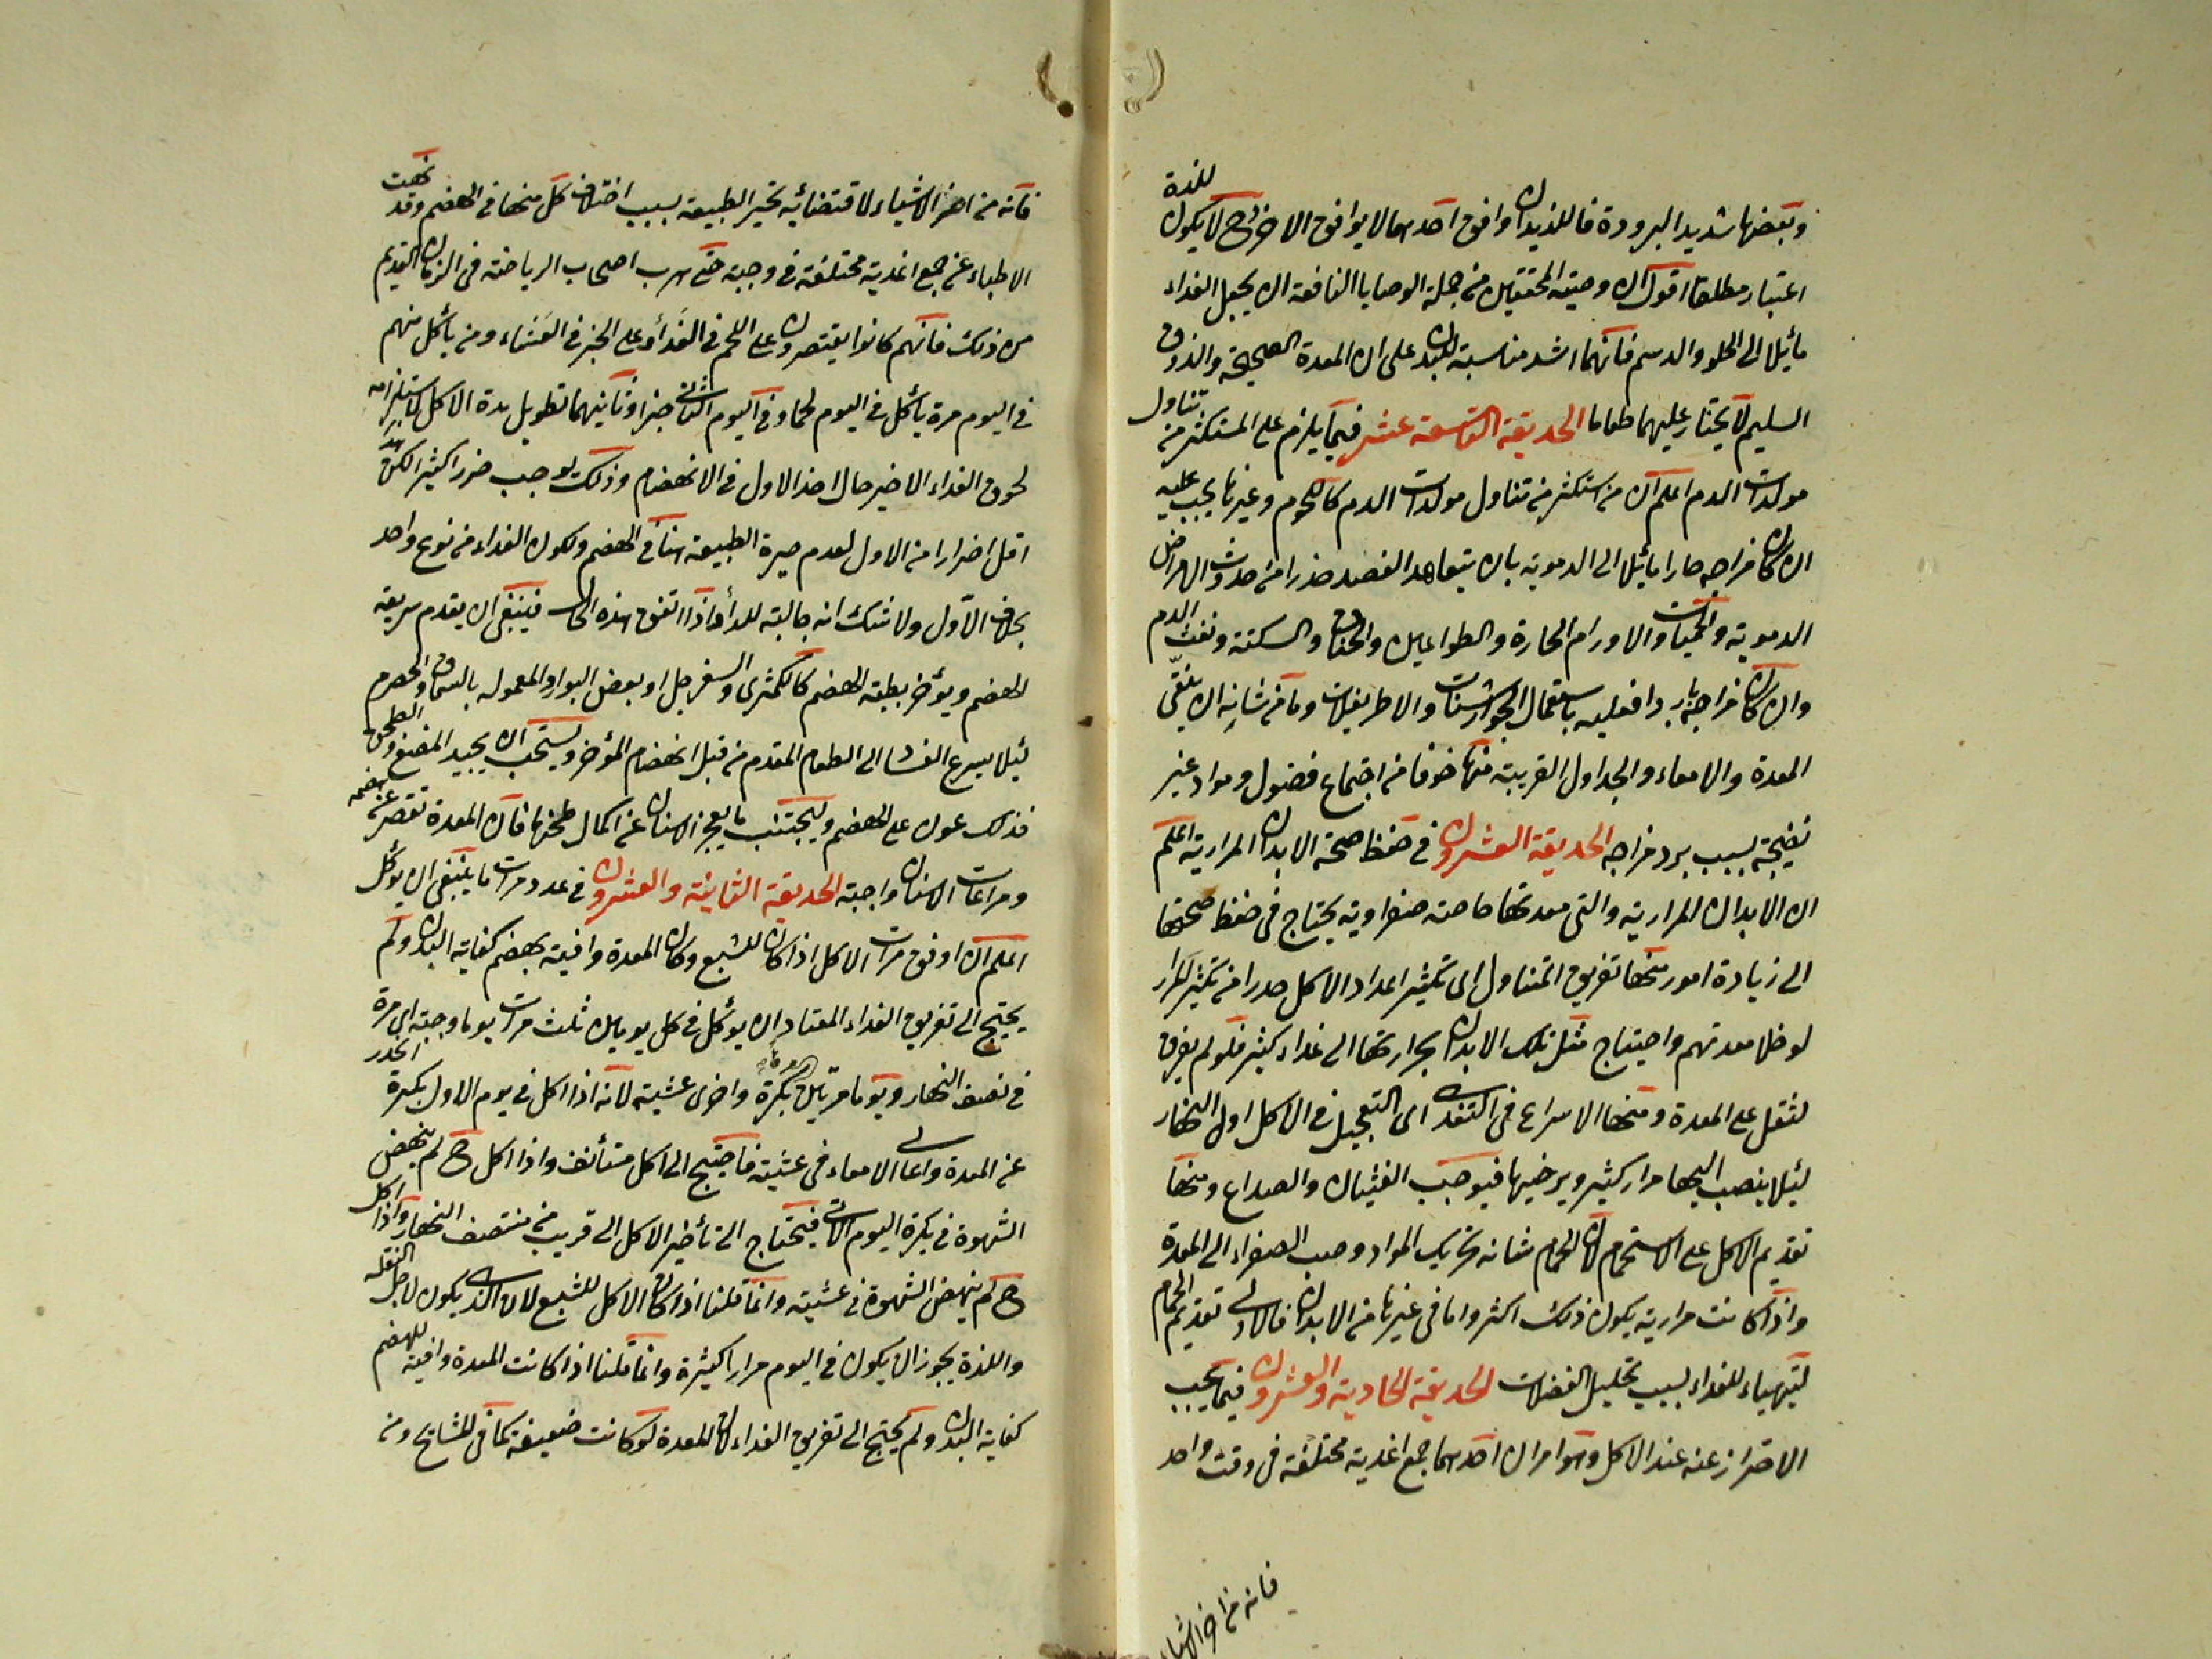 وبعضها شديد البرودة فاللذيذ ان وافق احدهما لا يوافق الاخر وح لا يكون للذة
اعتبار مطلقا اقول ان وصيته المحققين من جملة الوصايا النافعة ان يجعل الغذاء
مائلا الى الحلو والدسم فانهما اشد مناسبة للبدن على ان المعدة الصحيحة والذوق
السليم لا يختار عليهما طعاما الحديقة التاسعة عشر فيما يلزم على المستكثر من تناول
مولدات الدم اعلم ان من استكثر من تناول مولدات الدم كاللحوم وغيرها يجب عليه
ان كان مزاجه حارا مائلا الى الدموية بان يتعاهد الفصد حذرا من حدوث الامراض
الدموية والحميات والاورام الحارة والطواعين والخناق والسكتة ونفث الدم
وان كان مزاجه باردا فعليه باستعمال الجوارشنات والاطريفلات وما من شانه ان ينقي
المعدة والامعاء والجداول القريبة منها خوفا من اجتماع فضول ومواد غير
نضيجة بسبب برد مزاجه الحديقة العشرون في حفظ صحة الابدان المرارية اعلم
ان الابدان المرارية والتي معدتها خاصة صفراوية يحتاج في حفظ صحتها
الى زيادة امور منها تفريق المتناول الى تكثير اعداد الاكل حذرا من تكثير المرار
لو خلا معدتهم واحتياج مثل تلك الابدان بحرارتها الى غذاء كثير فلو لم يفرق
لثقل على المعدة ومنها الاسراع في التغذي اى التعجيل في الاكل اول النهار
لئلا ينصب اليها مرار كثير ويرخيها فيوجب الغثيان والصداع ومنها
تقديم الاكل على الاستحمام لان الحمام شانه تحريك المواد وصب الصفراء الى المعدة
واذا كانت مرارية يكون ذلك اكثر واما في غيرها من الابدان فالاولى تقديم الحمام
لتهياء للغذاء بسبب تحليل الفضلات الحديقة الحادية والعشرون فيما يجب
الاحتراز عنه عند الاكل وهو امران احدهما جمع اغذية مختلفة في وقت واحد
فانه من اضر الاشياء
فانه من اضر الاشياء لاقتضائه تحير الطبيعة بسبب اختلاف كل منها في الهضم وقد نهت
الاطباء عن جمع اغذية مختلفة في وجبة حتى هرب اصحاب الرياضة في الزمان القديم
من ذلك فانهم كانوا يقتصرون على اللحم في الغداء وعلى الخبز في العشاء ومن يأكل منهم
في اليوم مرة يأكل في اليوم لحما وفي اليوم الثاني خبزا وثانيهما تطويل مدة الاكل لاستلزامه
لحوق الغذاء الاخير حال اخذ الاول في الانهضام وذلك يوجب ضررا كثيرا لكن هذا
اقل اضرارا من الاول لعدم حيرة الطبيعة هنا في الهضم ولكون الغذاء من نوع واحد
بخلاف الاول ولا شك انه جالبة للداء واذا اتفق هذه الحالة فينبغي ان يقدم سريعة
الهضم ويؤخر بطئة الهضم كالكمثرى والسفرجل او بعض البوارد المعمولة بالسماق والحصرم
لئلا يسرع الغذاء الى الطعام المقدم من قبل انهضام المؤخر ويستحب ان يجيد المضغ والطحن
فذلك عون على الهضم وليجتنب ما يعجز الاسنان عن اكمال طحنها فان المعدة تقصر عن هضمه
ومراعات الاسنان واجبة الحديقة الثانية والعشرون في عدد مرات ما ينبغي ان يؤكل
اعلم ان اوفق مرات الاكل اذا كان للشبع وكان المعدة وافية بهضم كفاية البدن ولم
يحتج الى تفريق الغذاء المعتاد ان يؤكل في كل يومين ثلث مرات يوما وجبة اى مرة
في نصف النهار ويوما مرتين بكرة واخرى عشية لانه اذا اكل في يوم الاول بكرة انحدر
عن المعدة واعالى الامعاء في عشية فاحتيج الى اكل مستأنف واذا اكل ح لم ينهض
الشهوة في بكرة اليوم الاتي فيحتاج الى تأخير الاكل الى قريب من منتصف النهار واذا اكل
ح لم ينهض الشهوة في عشية وانما قلنا اذا كان الاكل للشبع لان الذي يكون لاجل النقلة
واللذة يجوز ان يكون في اليوم مرارا كثيرة وانما قلنا اذا كانت المعدة وافية للهضم
كفاية البدن ولم يحتج الى تفريق الغذاء لان المعدة لو كانت ضعيفة كما في المشايخ ومن